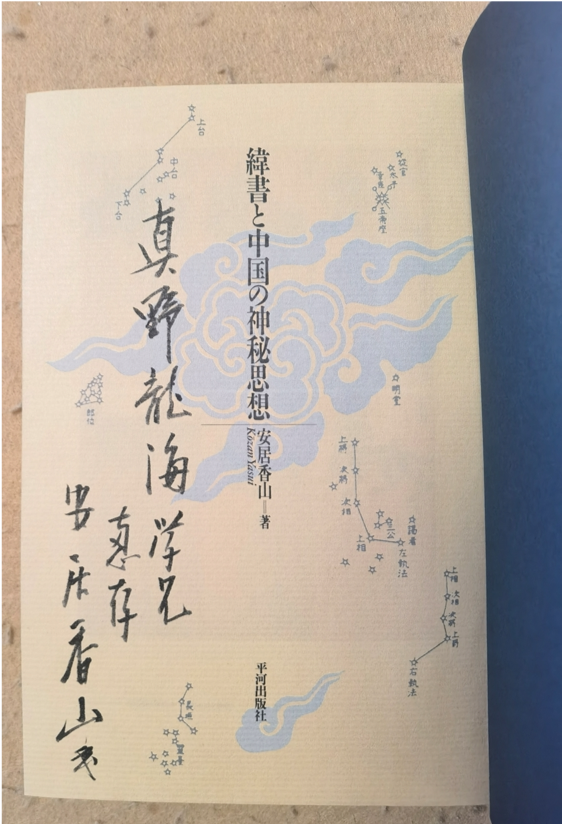 緯書と中国の神秘思想
安居香山=著
Kōzan Yasui
平河出版社
真野龍海学兄
恵存
安居香山
上台
中台
下台
明堂
郎位
五帝座
上将
次将
次相
上相
三公
謁者
左執法
上相
次相
次将
上将
右執法
長垣
霊台